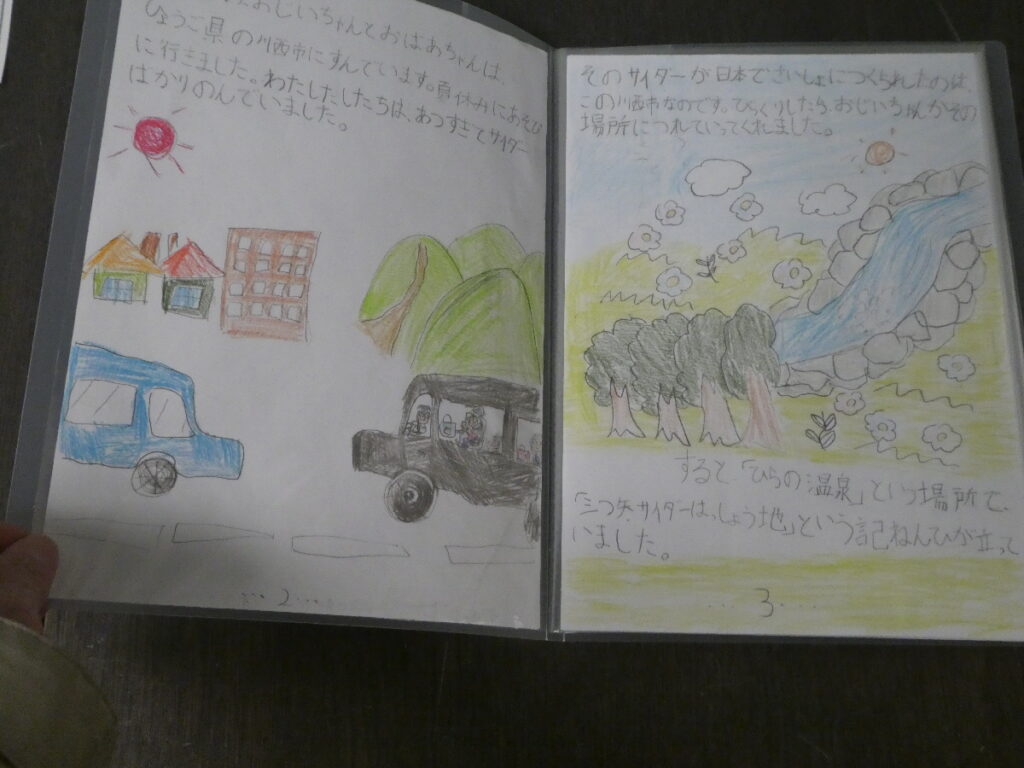 おじいちゃんとおばあちゃんは、
ひょうご県の川西市にすんでいます。夏休みにあそび
に行きました。わたしたしたちは、あつすぎてサイダー
ばかりのんでいました。
2
そのサイダーが日本でさいしょにつくられたのは、
この川西市なのです。びっくりしたら、おじいちゃんがその
場所につれていってくれました。
すると、「ひらの温泉」という場所で、
「三つ矢サイダーはっしょう地」という記ねんひが立って
いました。
3